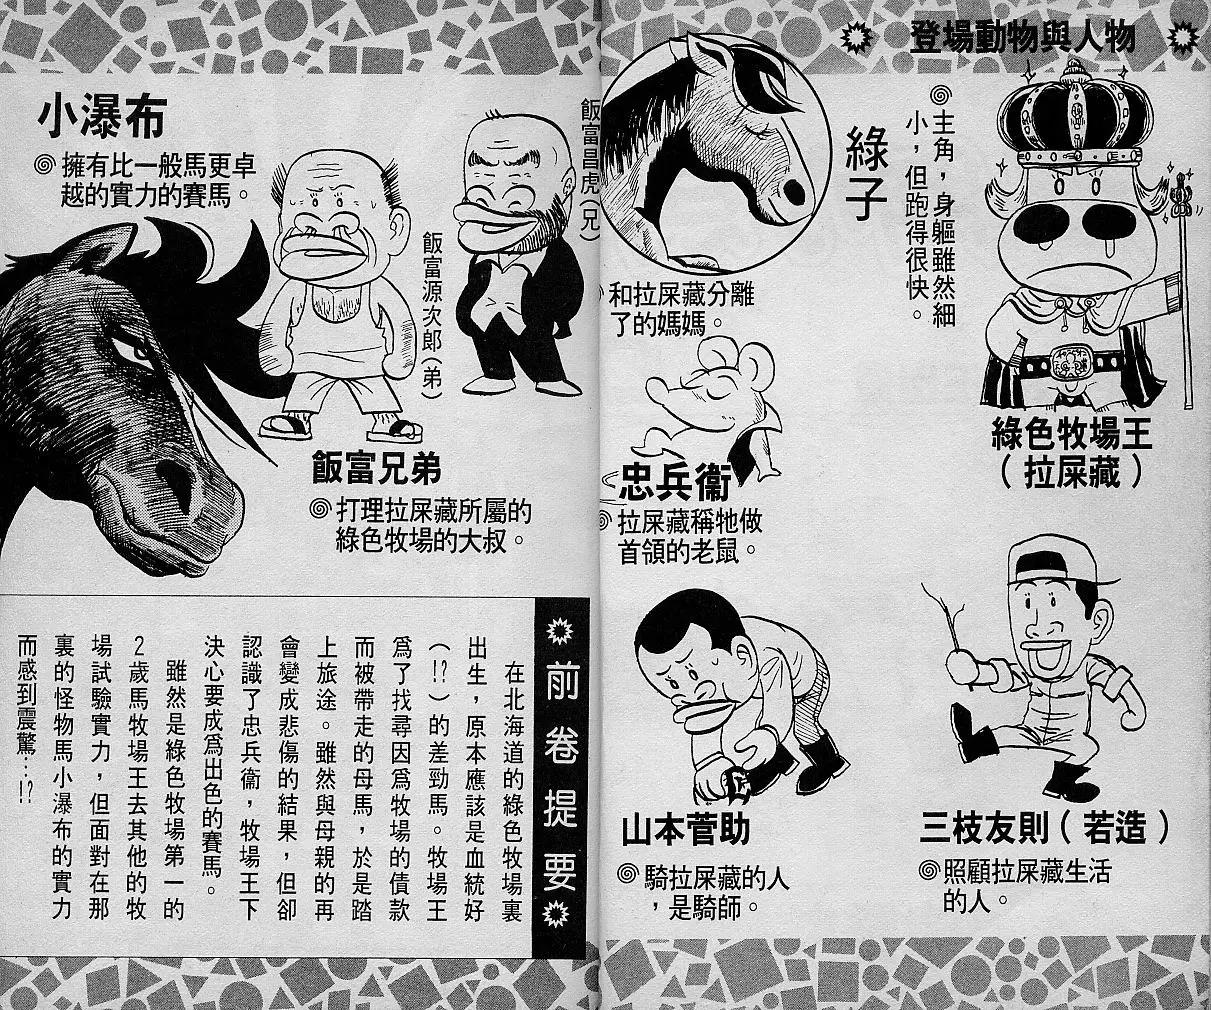 登場動物與人物
綠色牧場王
(拉屎藏)
◎主角,身軀雖然細
小,但跑得很快。
綠子
和拉屎藏分離
了的媽媽。
忠兵衞
◎拉屎藏稱牠做
首領的老鼠。
三枝友則(若造)
◎照顧拉屎藏生活
的人。
山本菅助
◎騎拉屎藏的人
,是騎師。
飯富昌虎(兄)
飯富源次郎(弟)
飯富兄弟
◎打理拉屎藏所屬的
綠色牧場的大叔。
小瀑布
◎擁有比一般馬更卓
越的實力的賽馬。
前卷提要
在北海道的綠色牧場裏
出生,原本應該是血統好
(!?)的差勁馬。牧場王
爲了找尋因爲牧場的債款
而被帶走的母馬,於是踏
上旅途。雖然與母親的再
會變成悲傷的結果,但卻
認識了忠兵衞,牧場王下
決心要成爲出色的賽馬。
雖然是綠色牧場第一的
2歲馬牧場王去其他的牧
場試驗實力,但面對在那
裏的怪物馬小瀑布的實力
而感到震驚…!?